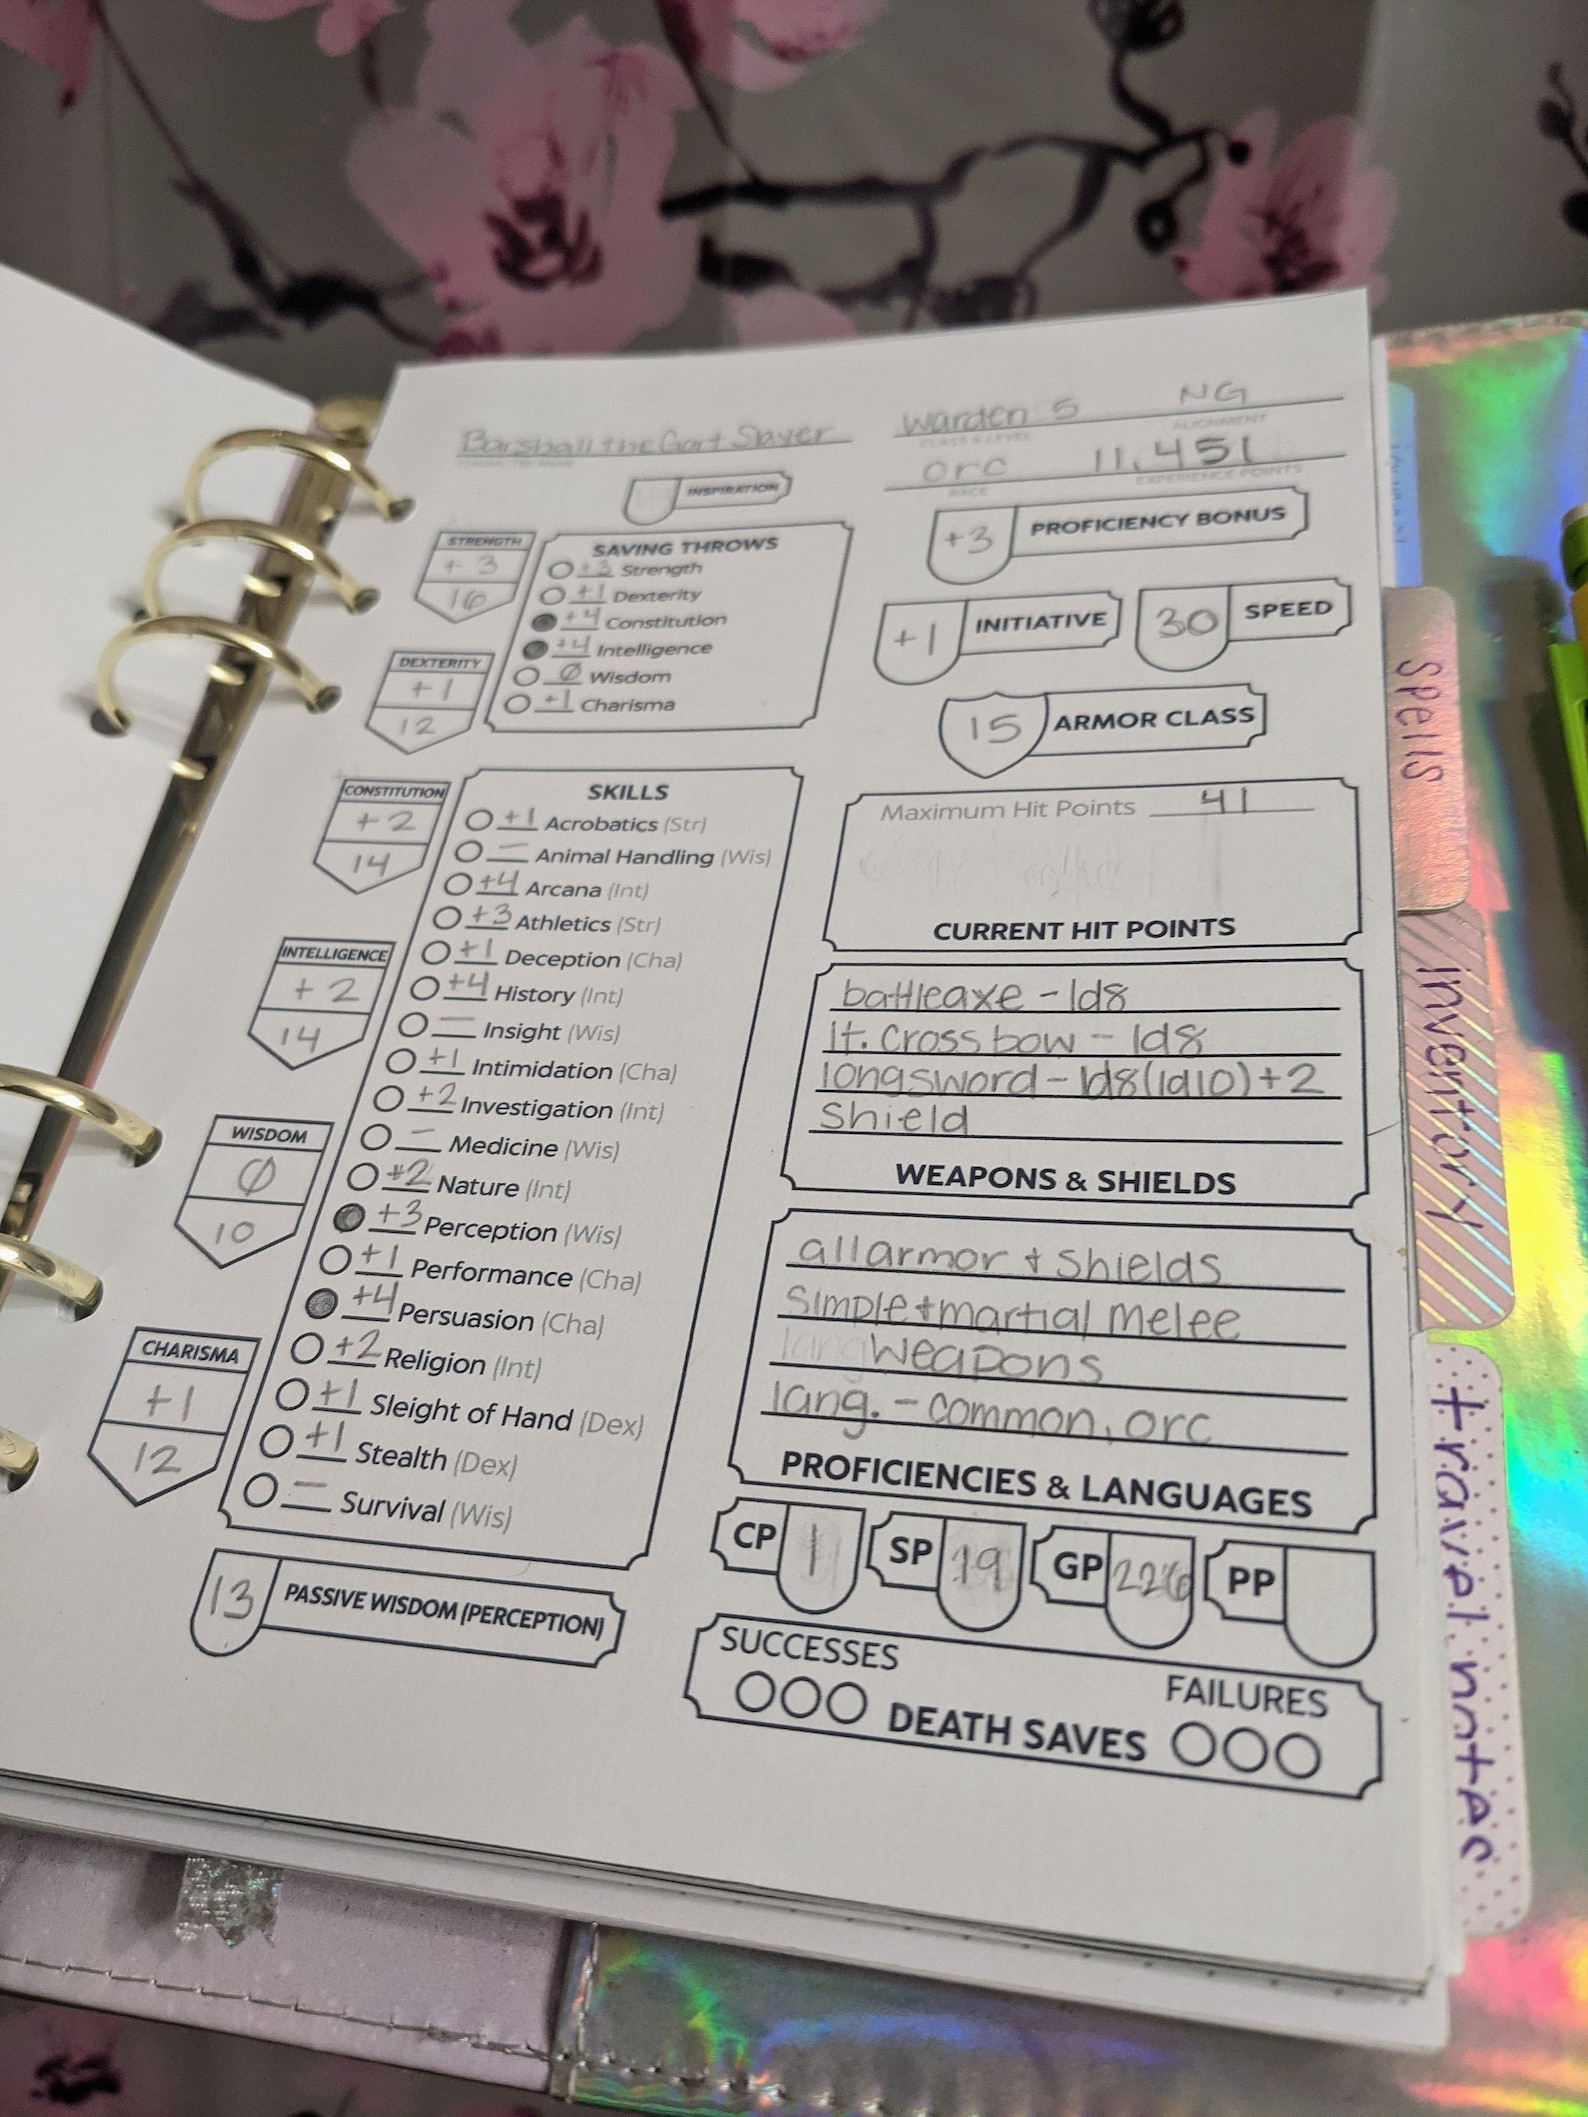 Barshall the Gort Slayer
CHARACTER NAME
Warden 5 NG
CLASS & LEVEL ALIGNMENT
orc 11,451
RACE EXPERIENCE POINTS
INSPIRATION
+3 PROFICIENCY BONUS
+1 INITIATIVE
30 SPEED
15 ARMOR CLASS
STRENGTH
+3
16
DEXTERITY
+1
12
CONSTITUTION
+2
14
INTELLIGENCE
+2
14
WISDOM
Ø
10
CHARISMA
+1
12
SAVING THROWS
+3 Strength
+1 Dexterity
+4 Constitution
+4 Intelligence
Ø Wisdom
+1 Charisma
SKILLS
+1 Acrobatics (Str)
— Animal Handling (Wis)
+4 Arcana (Int)
+3 Athletics (Str)
+1 Deception (Cha)
+4 History (Int)
— Insight (Wis)
+1 Intimidation (Cha)
+2 Investigation (Int)
— Medicine (Wis)
+2 Nature (Int)
+3 Perception (Wis)
+1 Performance (Cha)
+4 Persuasion (Cha)
+2 Religion (Int)
+1 Sleight of Hand (Dex)
+1 Stealth (Dex)
— Survival (Wis)
13 PASSIVE WISDOM (PERCEPTION)
Maximum Hit Points 41
CURRENT HIT POINTS
battleaxe - 1d8
lt. crossbow - 1d8
longsword - 1d8(1d10)+2
shield
WEAPONS & SHIELDS
all armor + shields
simple + martial melee
weapons
lang. - common, orc
PROFICIENCIES & LANGUAGES
CP 1 SP 19 GP 226 PP
SUCCESSES
FAILURES
DEATH SAVES
spells
inventory
travel notes